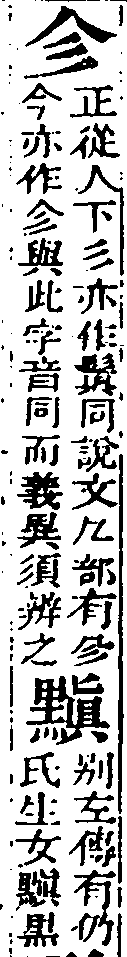 㐱
正從人下彡亦作鬒同說文几部有㐱
今亦作㐱與此字音同而義異須辨之
黰
別左傳有仍
氏生女黰黑